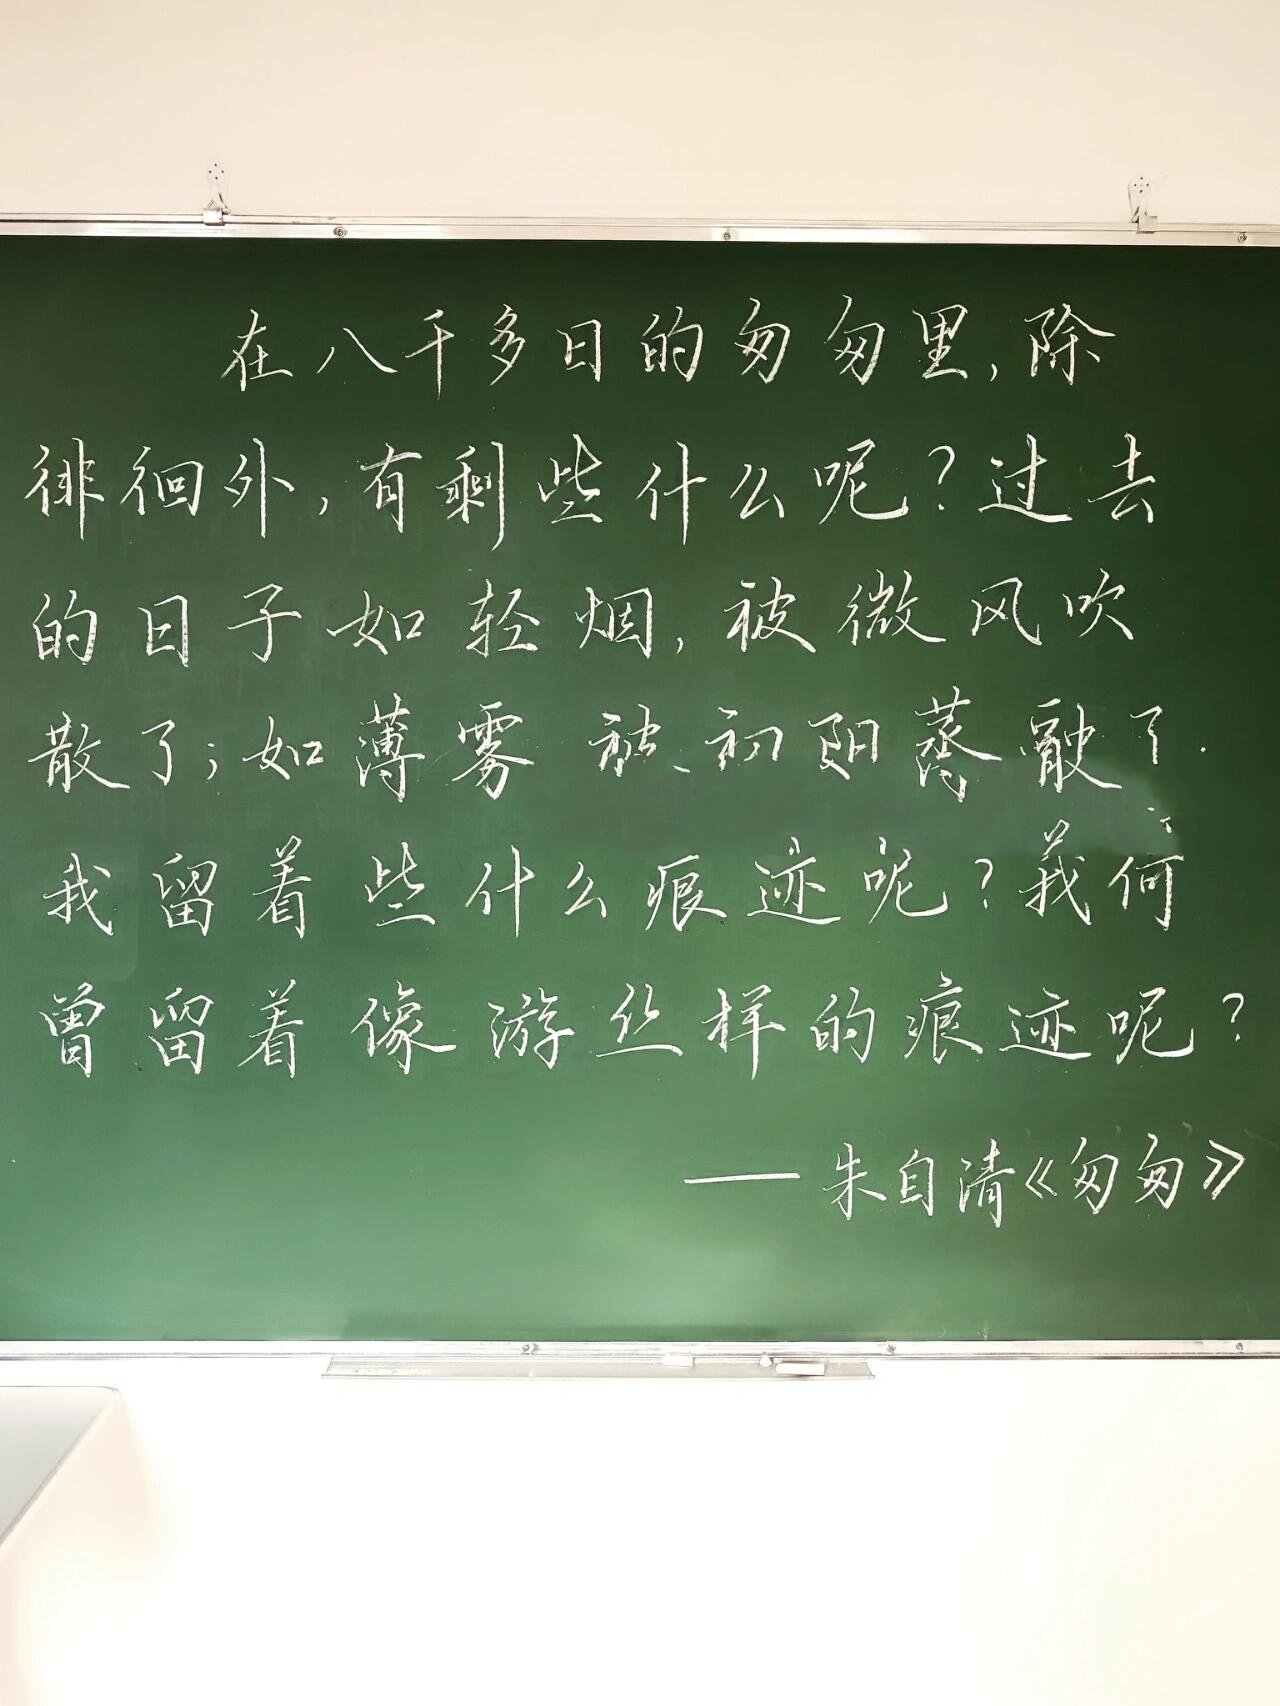 在八千多日的匆匆里,除
徘徊外,有剩些什么呢?过去
的日子如轻烟,被微风吹
散了;如薄雾被初阳蒸融了.
我留着些什么痕迹呢?我何
曾留着像游丝样的痕迹呢?
——朱自清《匆匆》